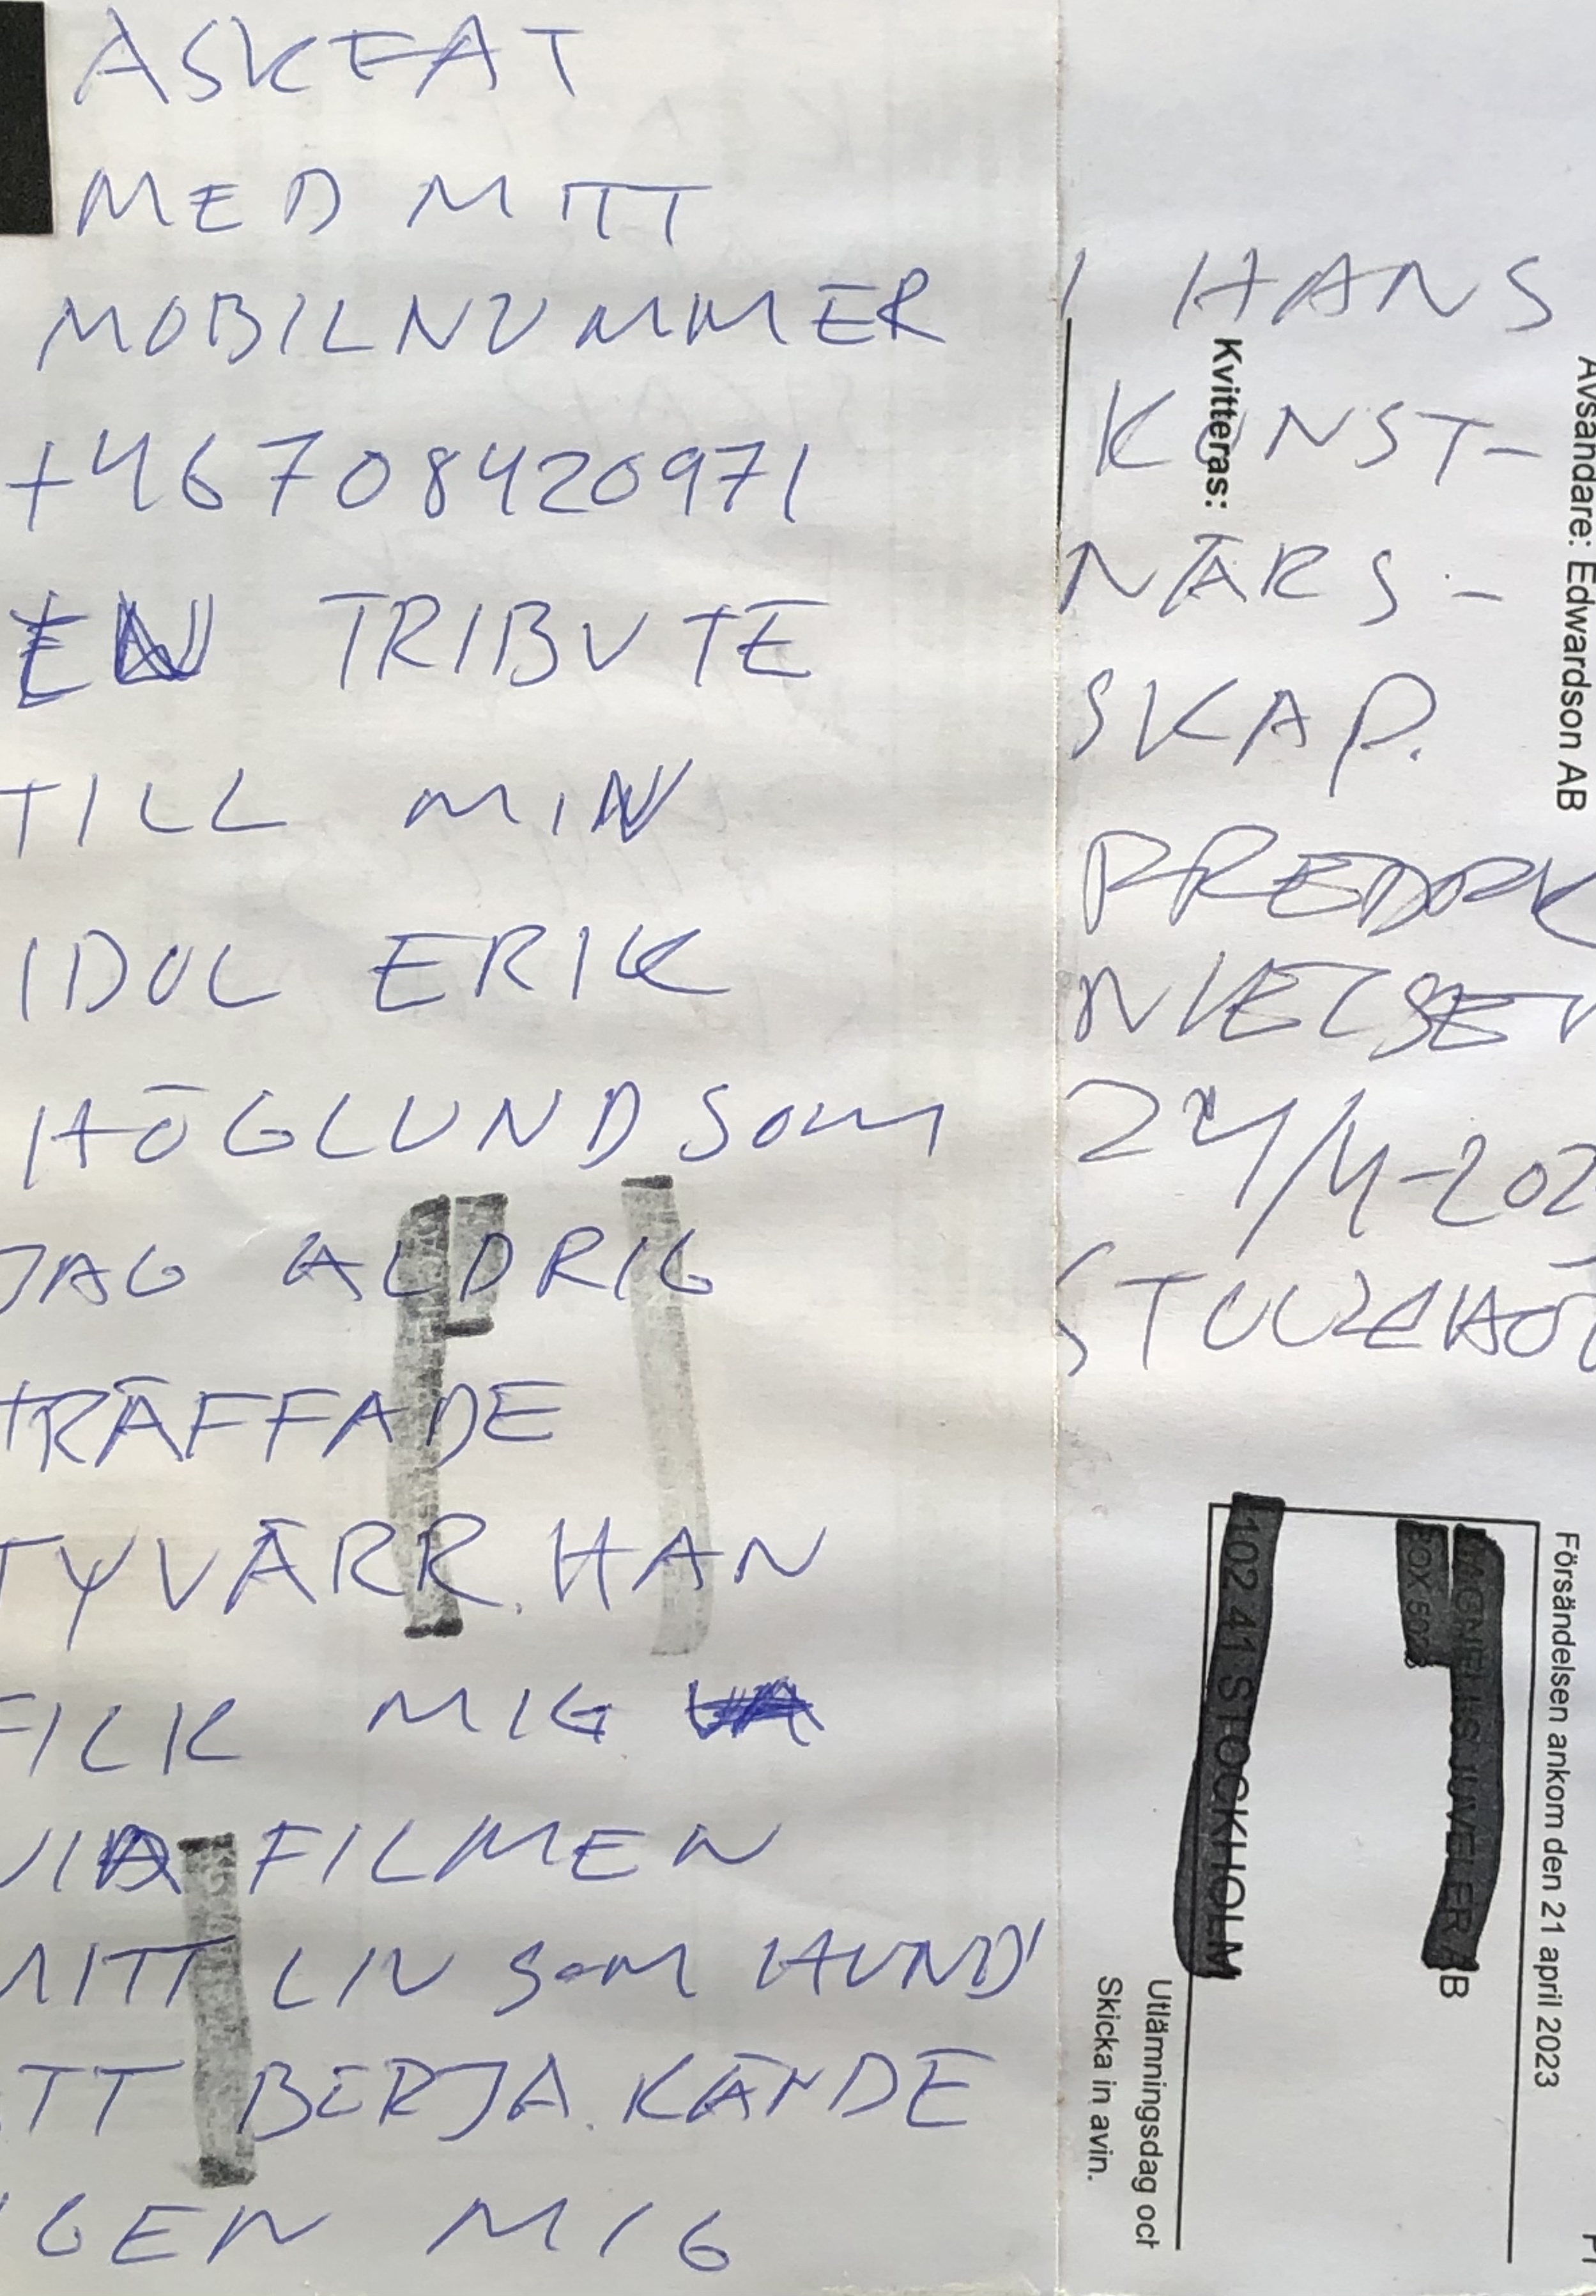 ASKFAT
MED MITT
MOBILNUMMER
+46708420971
EN TRIBUTE
TILL MIN
IDOL ERIK
HÖGLUND SOM
JAG ALDRIG
TRÄFFADE
TYVÄRR. HAN
FICK MIG
VIA FILMEN
MITT LIV SOM HUND
ATT BÖRJA. KÄNDE
IGEN MIG
I HANS
KONST-
NÄRS-
SKAP.
FREDRIK
NIELSEN
24/4-202
STOCKHOL
Kvitteras:
Avsändare: Edwardson AB
Försändelsen ankom den 21 april 2023
MAGNELLS JUVELER AB
BOX
102 41 STOCKHOLM
Utlämningsdag och
Skicka in avin.